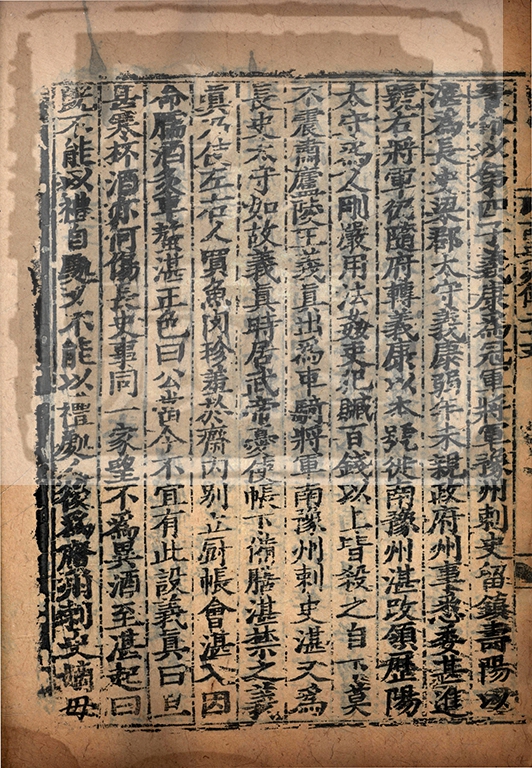 命以第四子義康為冠軍將軍豫州刺史留鎮壽陽以
湛為長史梁郡太守義康弱年未親政府州事悉委湛進
號右將軍仍隨府轉義康以本號徙南豫州湛改領歷陽
太守為人剛嚴用法姦吏犯贓百錢以上皆殺之自下莫
不震肅廬陵王義真出為車騎將軍南豫州刺史湛又為
長史太守如故義真時居武帝憂使帳下備膳湛禁之義
真乃使左右人買魚肉珍羞於齋內別立厨帳會湛入因
命臑酒炙車螯湛正色曰公當今不宜有此設義真曰旦
甚寒杯酒亦何傷長史事同一家望不為異酒至湛起曰
既不能以禮自處又不能以禮處人後為廣州刺史嫡母